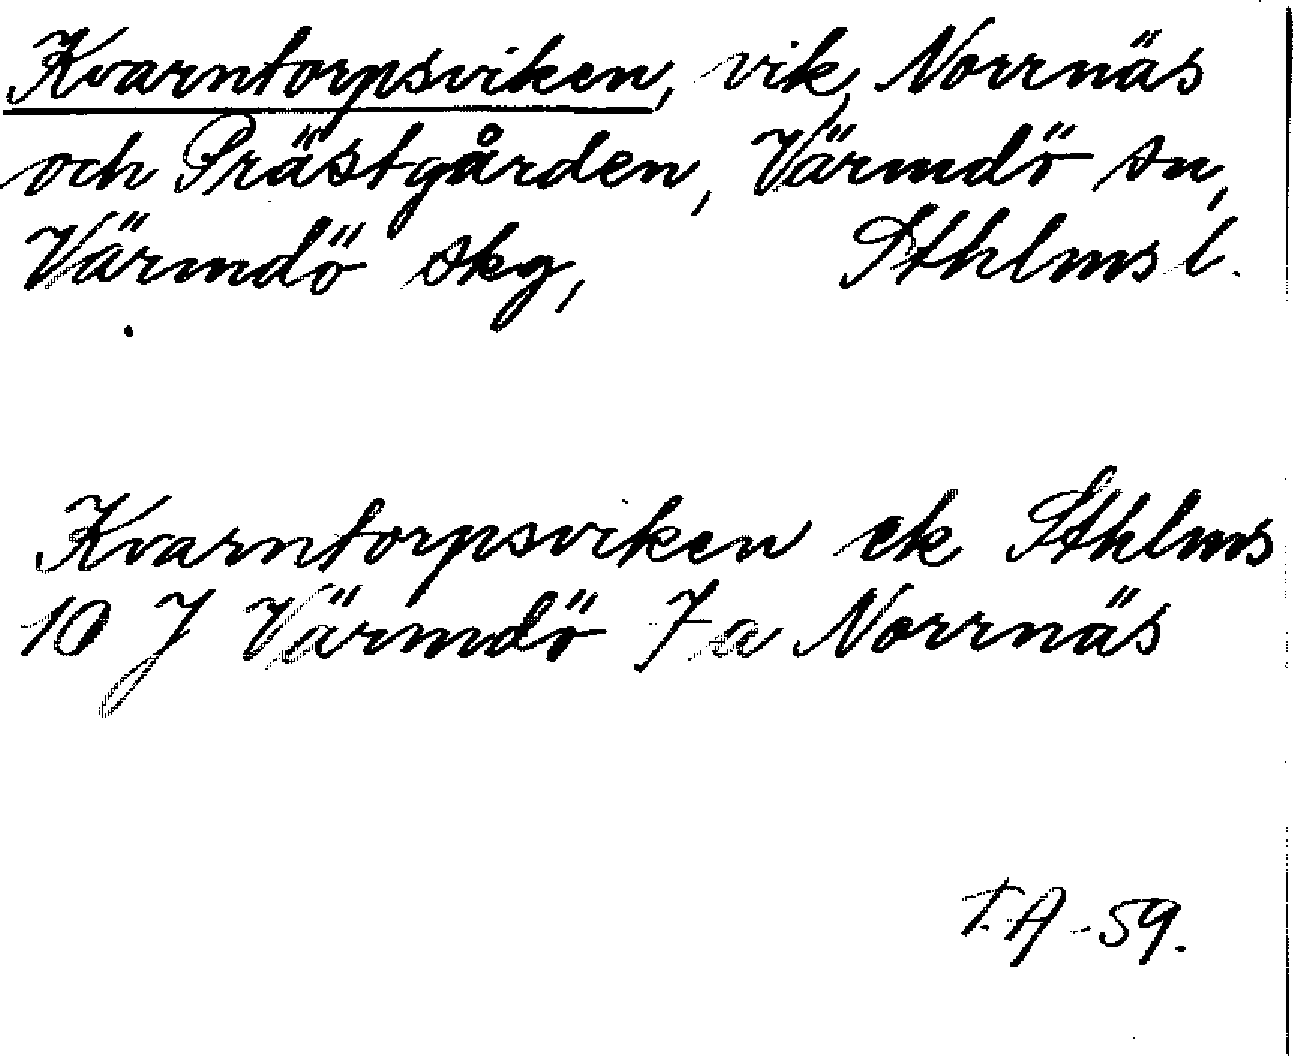 Kvarntorpsviken, vik, Norrnäs
och Prästgården, Värmdö sn,
Värmdö skg, Sthlms l.
Kvarntorpsviken ek Sthlms
10 J Värmdö 7a Norrnäs
T.A -59.